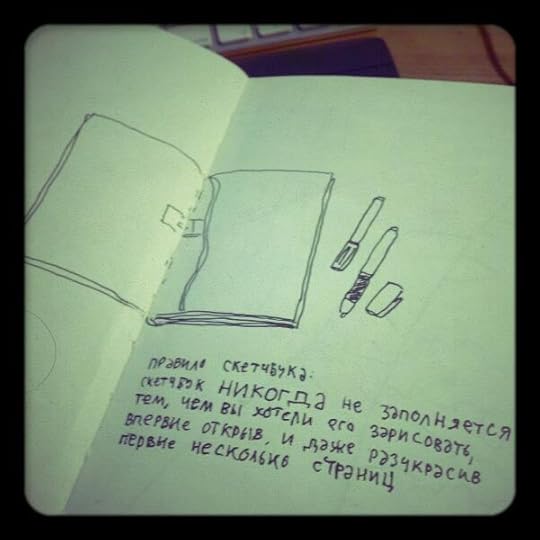 правило скетчбука:
скетчбук НИКОГДА не заполняется
тем, чем вы хотели его зарисовать,
впервые открыв, и даже разукрасив
первые несколько страниц